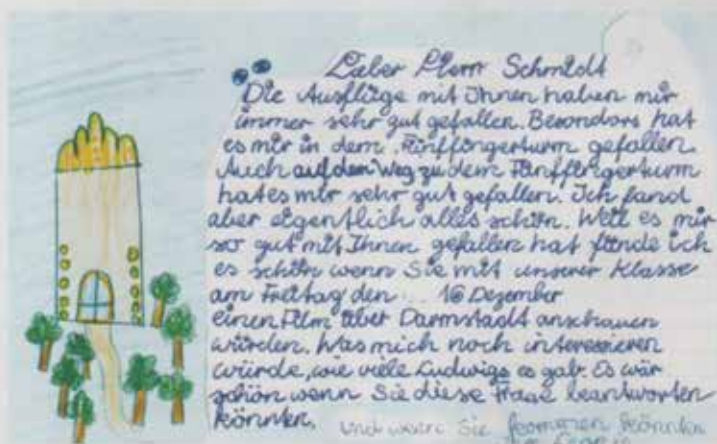 Lieber Herr Schmidt
Die Ausflüge mit Ihnen haben mir
immer sehr gut gefallen. Besonders hat
es mir in dem Fünffingerturm gefallen.
Auch auf dem Weg zu dem Fünffingerturm
hat es mir sehr gut gefallen. Ich fand
aber eigentlich alles schön. Weil es mir
so gut mit Ihnen gefallen hat fände ich
es schön wenn Sie mit unserer Klasse
am Freitag den ... 16 Dezember
einen Film über Darmstadt anschauen
würden. Was mich noch interessieren
würde, wie viele Ludwigs es gab. Es wär
schön wenn Sie diese Frage beantworten
könnten. und wenn Sie kommen könnten